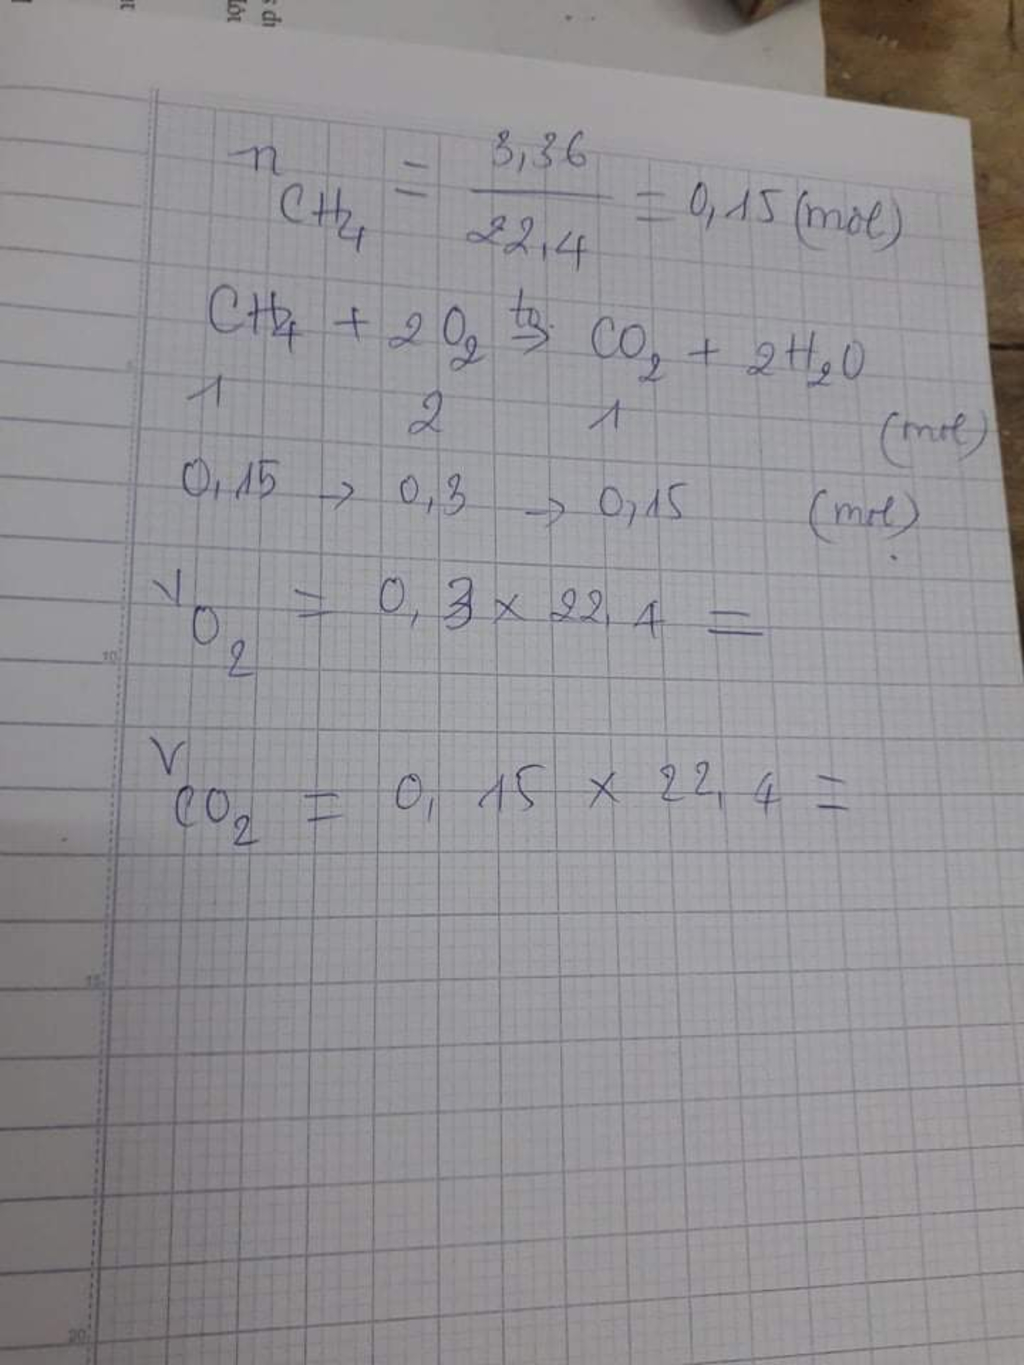 n CH4 = 3,36 / 22,4 = 0,15 (mol)
CH4 + 2O2 to→ CO2 + 2H2O
1 2 1 (mol)
0,15 → 0,3 → 0,15 (mol)
V O2 = 0,3 × 22,4 =
V CO2 = 0,15 × 22,4 =
10
15
20